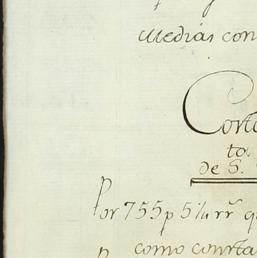 medias con
Corte
to.
de S.
Por 755 p 5½ rr q
como conrta